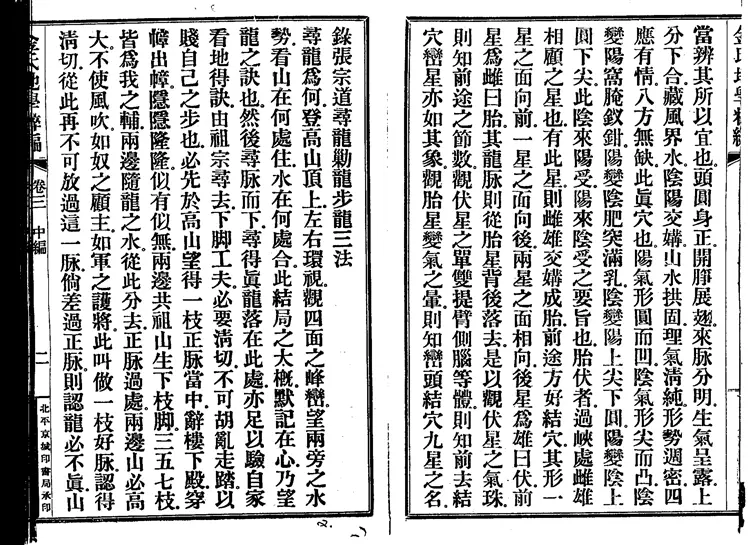 當辨其所以宜也。頭圓身正開睜展翅來脉分明生氣呈露上
分下合藏風界水陰陽交媾山水拱固理氣清純形勢週密四
應有情八方無缺此眞穴也陽氣形圓而凹陰氣形尖而凸陰
變陽窩腌釵鉗陽變陰肥突滿乳陰變陽上尖下圓陽變陰上
圓下尖此陰來陽受陽來陰受之要旨也胎伏者過峽處雌雄
相顧之星也有此星則雌雄交媾成胎前途方好結穴其形一
星之面向前一星之面向後兩星之面相向後星爲雄曰伏前
星爲雌曰胎其龍脉則從胎星背後落去是以觀伏星之氣珠
則知前途之節數觀伏星之單雙提臂側腦等體則知前去結
穴巒星亦如其象觀胎星變氣之暈則知巒頭結穴九星之名
錄張宗道尋龍勦龍步龍三法
尋龍爲何登高山頂上左右環視觀四面之峰巒望兩旁之水
勢看山在何處住水在何處合此結局之大槪默記在心乃望
龍之訣也然後尋脉而下尋得眞龍落在此處亦足以驗自家
看地得訣由祖宗尋去下脚工夫必要淸切不可胡亂走踏以
賤自己之步也必先於高山望得一枝正脉當中辭樓下殿穿
幛出幛隱隱隆隆似有似無兩邊共祖山生下枝脚三五七枝
皆爲我之輔兩邊隨龍之水從此分去正脉過處兩邊山必高
大不使風吹如奴之顧主如軍之護將此叫做一枝好脉認得
淸切從此再不可放過這一脉倘差過正脉則認龍必不眞山
卷三 中編
二
北平京城印書局承印